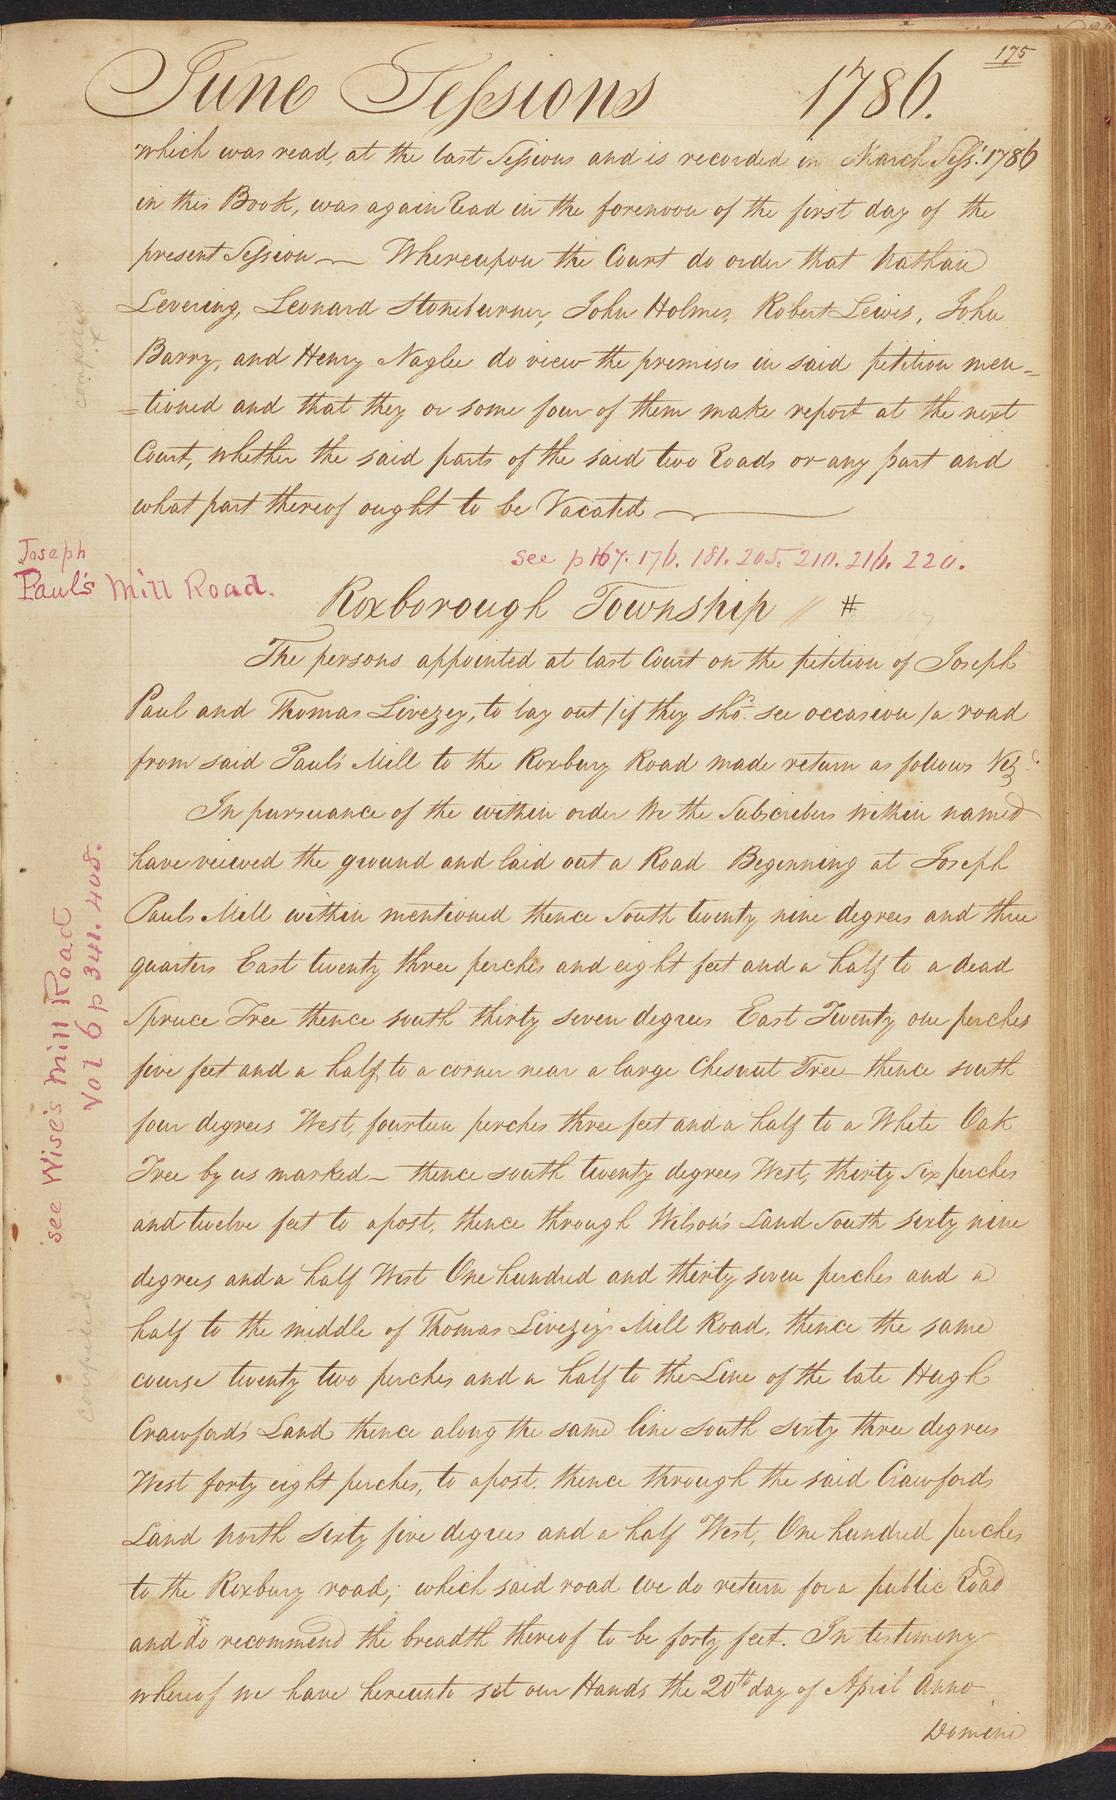 175
June Sessions 1786.
which was read, at the last Sessions and is recorded in March Sess: 1786
in this Book, was again Read in the forenoon of the first day of the
present Session — Whereupon the Court do order that Nathan
Levering, Leonard Stoneburner, John Holmes, Robert Lewis, John
Barry, and Henry Naglee do view the premises in said petition men=
=tioned and that they or some four of them make report at the next
Court, whether the said parts of the said two Roads or any part and
what part thereof ought to be Vacated —
see p 167. 176. 181. 205. 210. 216. 220.
Joseph
Paul's Mill Road.
Roxborough Township // #
The persons appointed at last Court on the petition of Joseph
Paul and Thomas Livezey, to lay out /if they sho.d see occasion/ a road
from said Paul's Mill to the Roxbury Road made return as follows Viz
In pursuance of the within order We the Subscribers within named
have veiwed the ground and laid out a Road Beginning at Joseph
Pauls Mill within mentioned thence South twenty nine degrees and three
quarters East twenty three perches and eight feet and a half to a dead
Spruce Tree thence south thirty seven degrees East Twenty one perches
five feet and a half, to a corner near a large Chesnut Tree thence south
four degrees West, fourteen perches three feet and a half to a White Oak
Tree by us marked — thence south twenty degrees West, thirty six perches
and twelve feet to a post, thence through Wilson's Land South sixty nine
degrees and a half West One hundred and thirty seven perches and a
half to the middle of Thomas Livezey's Mill Road, thence the same
course twenty two perches and a half to the Line of the late Hugh
Crawford's Land thence along the same line south sixty three degrees
West forty eight perches, to a post. thence through the said Crawfords
Land North sixty five degrees and a half West, One hundred perches
to the Roxbury road; which said road we do return for a public Road
and do recommend the breadth thereof to be forty feet. In testimony
whereof we have hereunto set our Hands the 20th day of April Anno
Domini
see Wise's Mill Road
Vol 6 p 341. 408.
compared